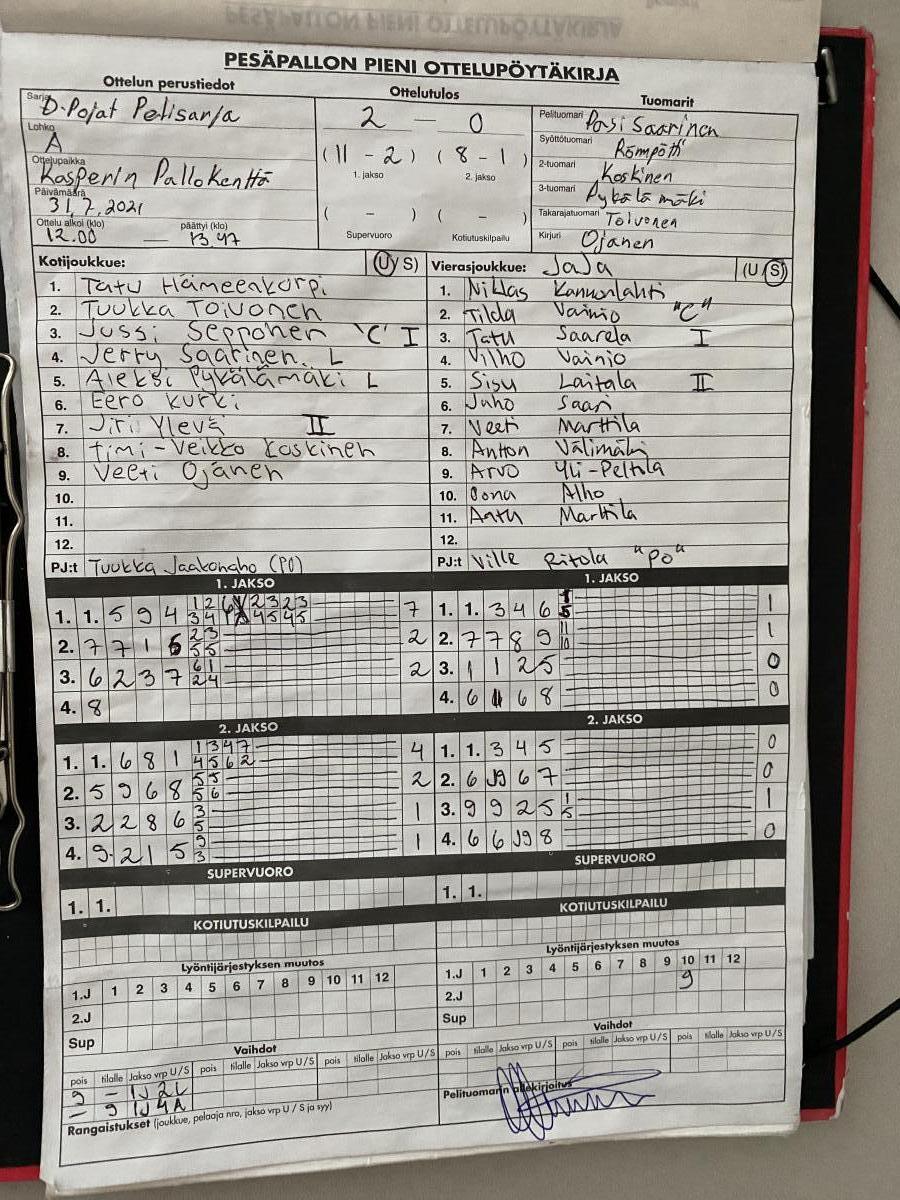 PESÄPALLON PIENI OTTELUPÖYTÄKIRJA
Ottelun perustiedot
Ottelutulos
Tuomarit
Sarja
D-Pojat Pelisarja
Lohko
A
Ottelupaikka
Kasperin Pallokenttä
Päivämäärä
31.7.2021
Ottelu alkoi (klo) päättyi (klo)
12.00 — 13.47
2 — 0
(11 - 2) (8 - 1)
1. jakso 2. jakso
( - ) ( - )
Supervuoro Kotiutuskilpailu
Pelituomari Pasi Saarinen
Syöttötuomari Römpötti
2-tuomari Koskinen
3-tuomari Pykälämäki
Takarajatuomari Toivonen
Kirjuri Ojanen
Kotijoukkue: (U/S)
1. Tatu Hämeenkorpi
2. Tuukka Toivonen
3. Jussi Sepponen "C" I
4. Jerry Saarinen L
5. Aleksi Pykälämäki L
6. Eero Kurki
7. Jiri Ylevä II
8. Timi-Veikko Koskinen
9. Veeti Ojanen
10.
11.
12.
PJ:t Tuukka Jaakonaho (PO)
Vierasjoukkue: JaJa (U/S)
1. Niklas Kannonlahti
2. Tilda Vainio "C"
3. Tatu Saarela I
4. Vilho Vainio
5. Sisu Laitala II
6. Juho Saari
7. Veeti Marttila
8. Anton Välimäki
9. Arvo Yli-Peltola
10. Oona Alho
11. Aatu Marttila
12.
PJ:t Ville Ritola "PO"
1. JAKSO
1. 1. 5 9 4 7
2. 7 7 1 5 2
3. 6 2 3 7 2
4. 8
1. JAKSO
1. 1. 3 4 6 1
2. 7 7 8 9 11 10 1
3. 1 1 2 5 0
4. 6 6 8 0
2. JAKSO
1. 1. 6 8 1 1 3 4 7 4
4 5 6 2
2. 5 9 6 8 5 5 2
5 6
3. 2 2 8 6 3 1
5
4. 9 2 1 5 9 1
3
2. JAKSO
1. 1. 3 4 5 0
2. 6 J9 6 7 0
3. 9 9 2 5 1 1
5
4. 6 6 J9 8 0
SUPERVUORO
1. 1.
SUPERVUORO
1. 1.
KOTIUTUSKILPAILU
KOTIUTUSKILPAILU
Lyöntijärjestyksen muutos
1.J 1 2 3 4 5 6 7 8 9 10 11 12
2.J
Sup
Lyöntijärjestyksen muutos
1.J 1 2 3 4 5 6 7 8 9 10 11 12
9
2.J
Sup
Vaihdot
pois tilalle Jakso vrp U/S pois tilalle Jakso vrp U/S pois tilalle Jakso vrp U/S
9 - 1J 2L
- 9 1J 4A
Rangaistukset (joukkue, pelaaja nro, jakso vrp U / S ja syy)
Vaihdot
pois tilalle Jakso vrp U/S pois tilalle Jakso vrp U/S pois tilalle Jakso vrp U/S
Pelituomarin allekirjoitus